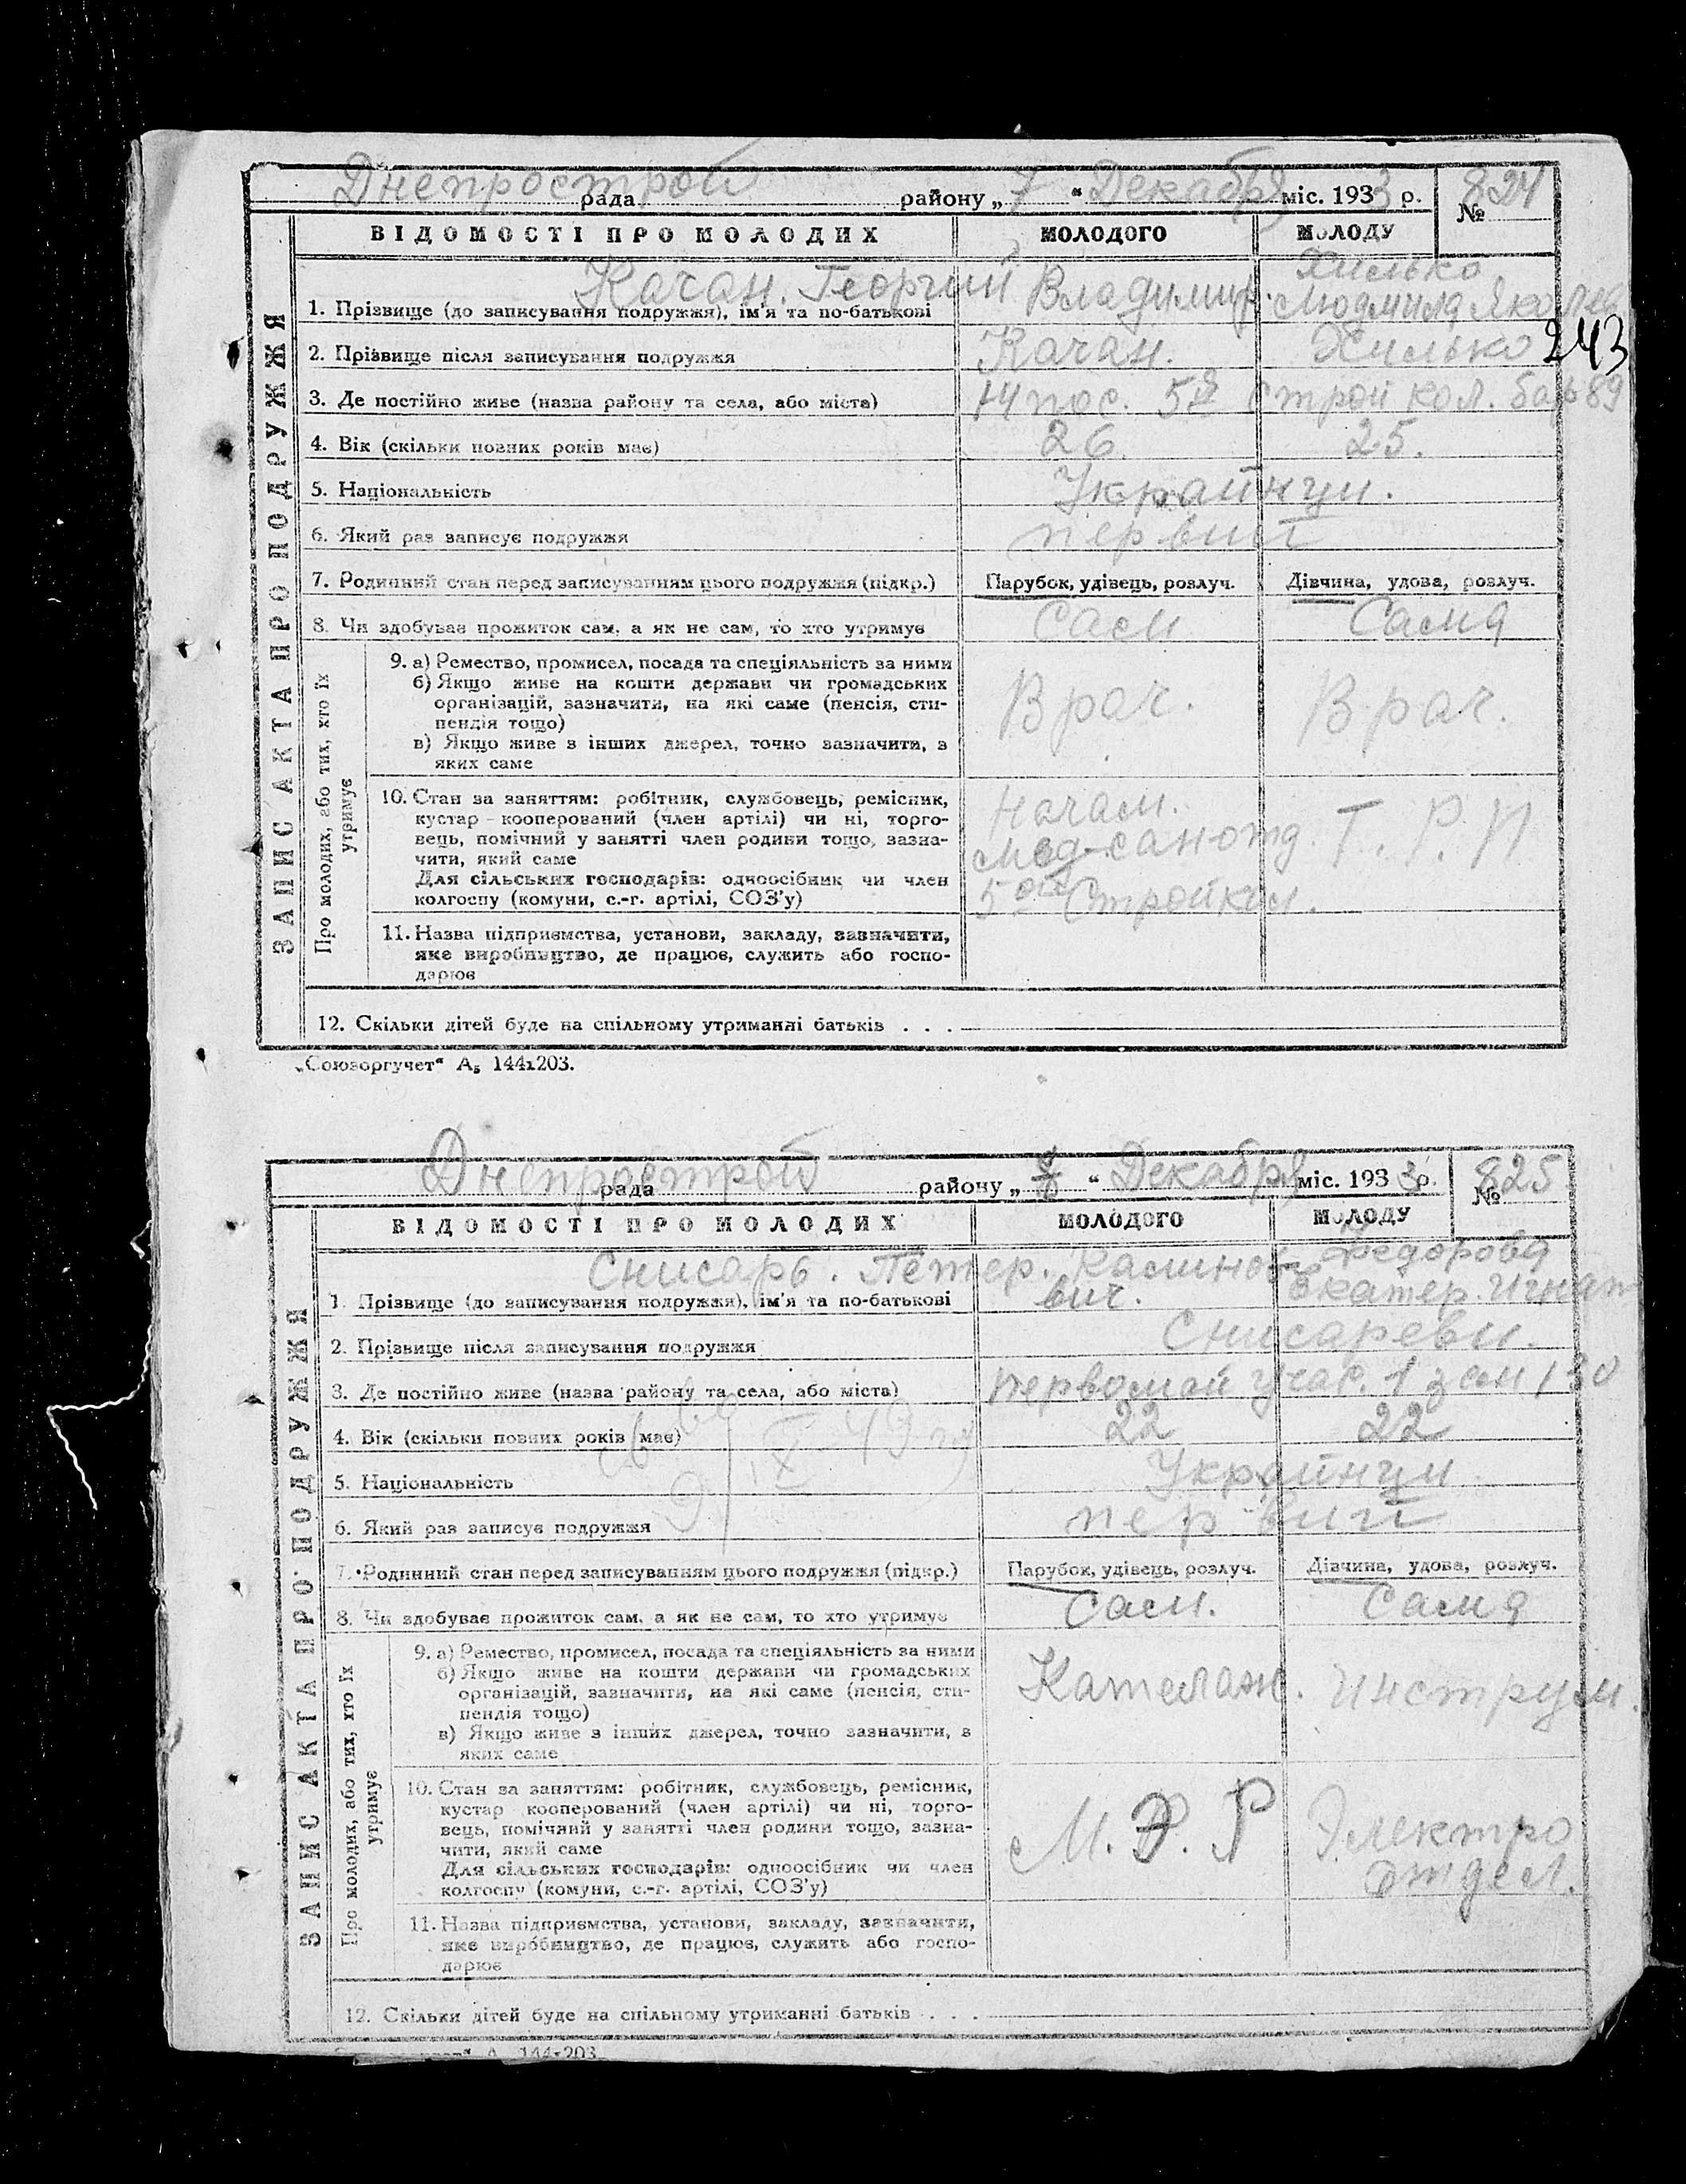 Днепрострой рада району „ 7 “ Декабря міс. 1933 р. № 824
ВІДОМОСТІ ПРО МОЛОДИХ МОЛОДОГО МОЛОДУ
ЗАПИС АКТА ПРО ПОДРУЖЖЯ
1. Прізвище (до записування подружжя), ім'я та по-батькові Качан. Георгий Владимир. Хилько Людмила Яковлев
243
2. Прізвище після записування подружжя Качан. Хилько
3. Де постійно живе (назва району та села, або міста) 14 пос. 58 Строй кол. бар 89
4. Вік (скільки повних років має) 26. 25.
5. Національність Украйнци.
6. Який раз записує подружжя первий
7. Родинний стан перед записуванням цього подружжя (підкр.) Парубок, удівець, розлуч. Дівчина, удова, розлуч.
8. Чи здобував прожиток сам, а як не сам, то хто утримує Сам Сама
Про молодих, або тих, хто їх утримує
9. а) Ремество, промисел, посада та спеціяльність за ними
б) Якщо живе на кошти держави чи громадських
організацій, зазначити, на які саме (пенсія, сти-
пендія тощо)
в) Якщо живе з інших джерел, точно зазначити, з
яких саме
Врач. Врач.
10. Стан за заняттям: робітник, службовець, ремісник,
кустар - кооперований (член артілі) чи ні, торго-
вець, помічний у занятті член родини тощо, зазна-
чити, який саме
Для сільських господарів: одноосібник чи член
колгоспу (комуни, с.-г. артілі, СОЗ'у)
Начам.
Мед-санотд. Т. Р. П
5ой Стройкил.
11. Назва підприємства, установи, закладу, зазначити,
яке виробництво, де працює, служить або госпо-
дарює
12. Скільки дітей буде на спільному утриманні батьків . . .
„Союзоргучет“ А₅ 144х203.
Днепрострой рада району „ 8 “ Декабря міс. 1933 р. № 825
ВІДОМОСТІ ПРО МОЛОДИХ МОЛОДОГО МОЛОДУ
ЗАПИС АКТА ПРО ПОДРУЖЖЯ
1. Прізвище (до записування подружжя), ім'я та по-батькові Снисарь. Петер. Касимович. Федорова Екатер. Игнат
2. Прізвище після записування подружжя Снисареви.
3. Де постійно живе (назва району та села, або міста) Первомай учас. 1 зем 130
4. Вік (скільки повних років має) 22 22
5. Національність Украйнци
6. Який раз записує подружжя первий
7. Родинний стан перед записуванням цього подружжя (підкр.) Парубок, удівець, розлуч. Дівчина, удова, розлуч.
8. Чи здобуває прожиток сам, а як не сам, то хто утримує Сам. Сама
Про молодих, або тих, хто їх утримує
9. а) Ремество, промисел, посада та спеціяльність за ними
б) Якщо живе на кошти держави чи громадських
організацій, зазначити, на які саме (пенсія, сти-
пендія тощо)
в) Якщо живе з інших джерел, точно зазначити, з
яких саме
Инструм.
10. Стан за заняттям: робітник, службовець, ремісник,
кустар кооперований (член артілі) чи ні, торго-
вець, помічний у занятті член родини тощо, зазна-
чити, який саме
Для сільських господарів: одноосібник чи член
колгоспу (комуни, с.-г. артілі, СОЗ'у)
М. Э. Р Электро
отдел.
11. Назва підприємства, установи, закладу, зазначити,
яке виробництво, де працює, служить або госпо-
дарює
12. Скільки дітей буде на спільному утриманні батьків . . .
144х203